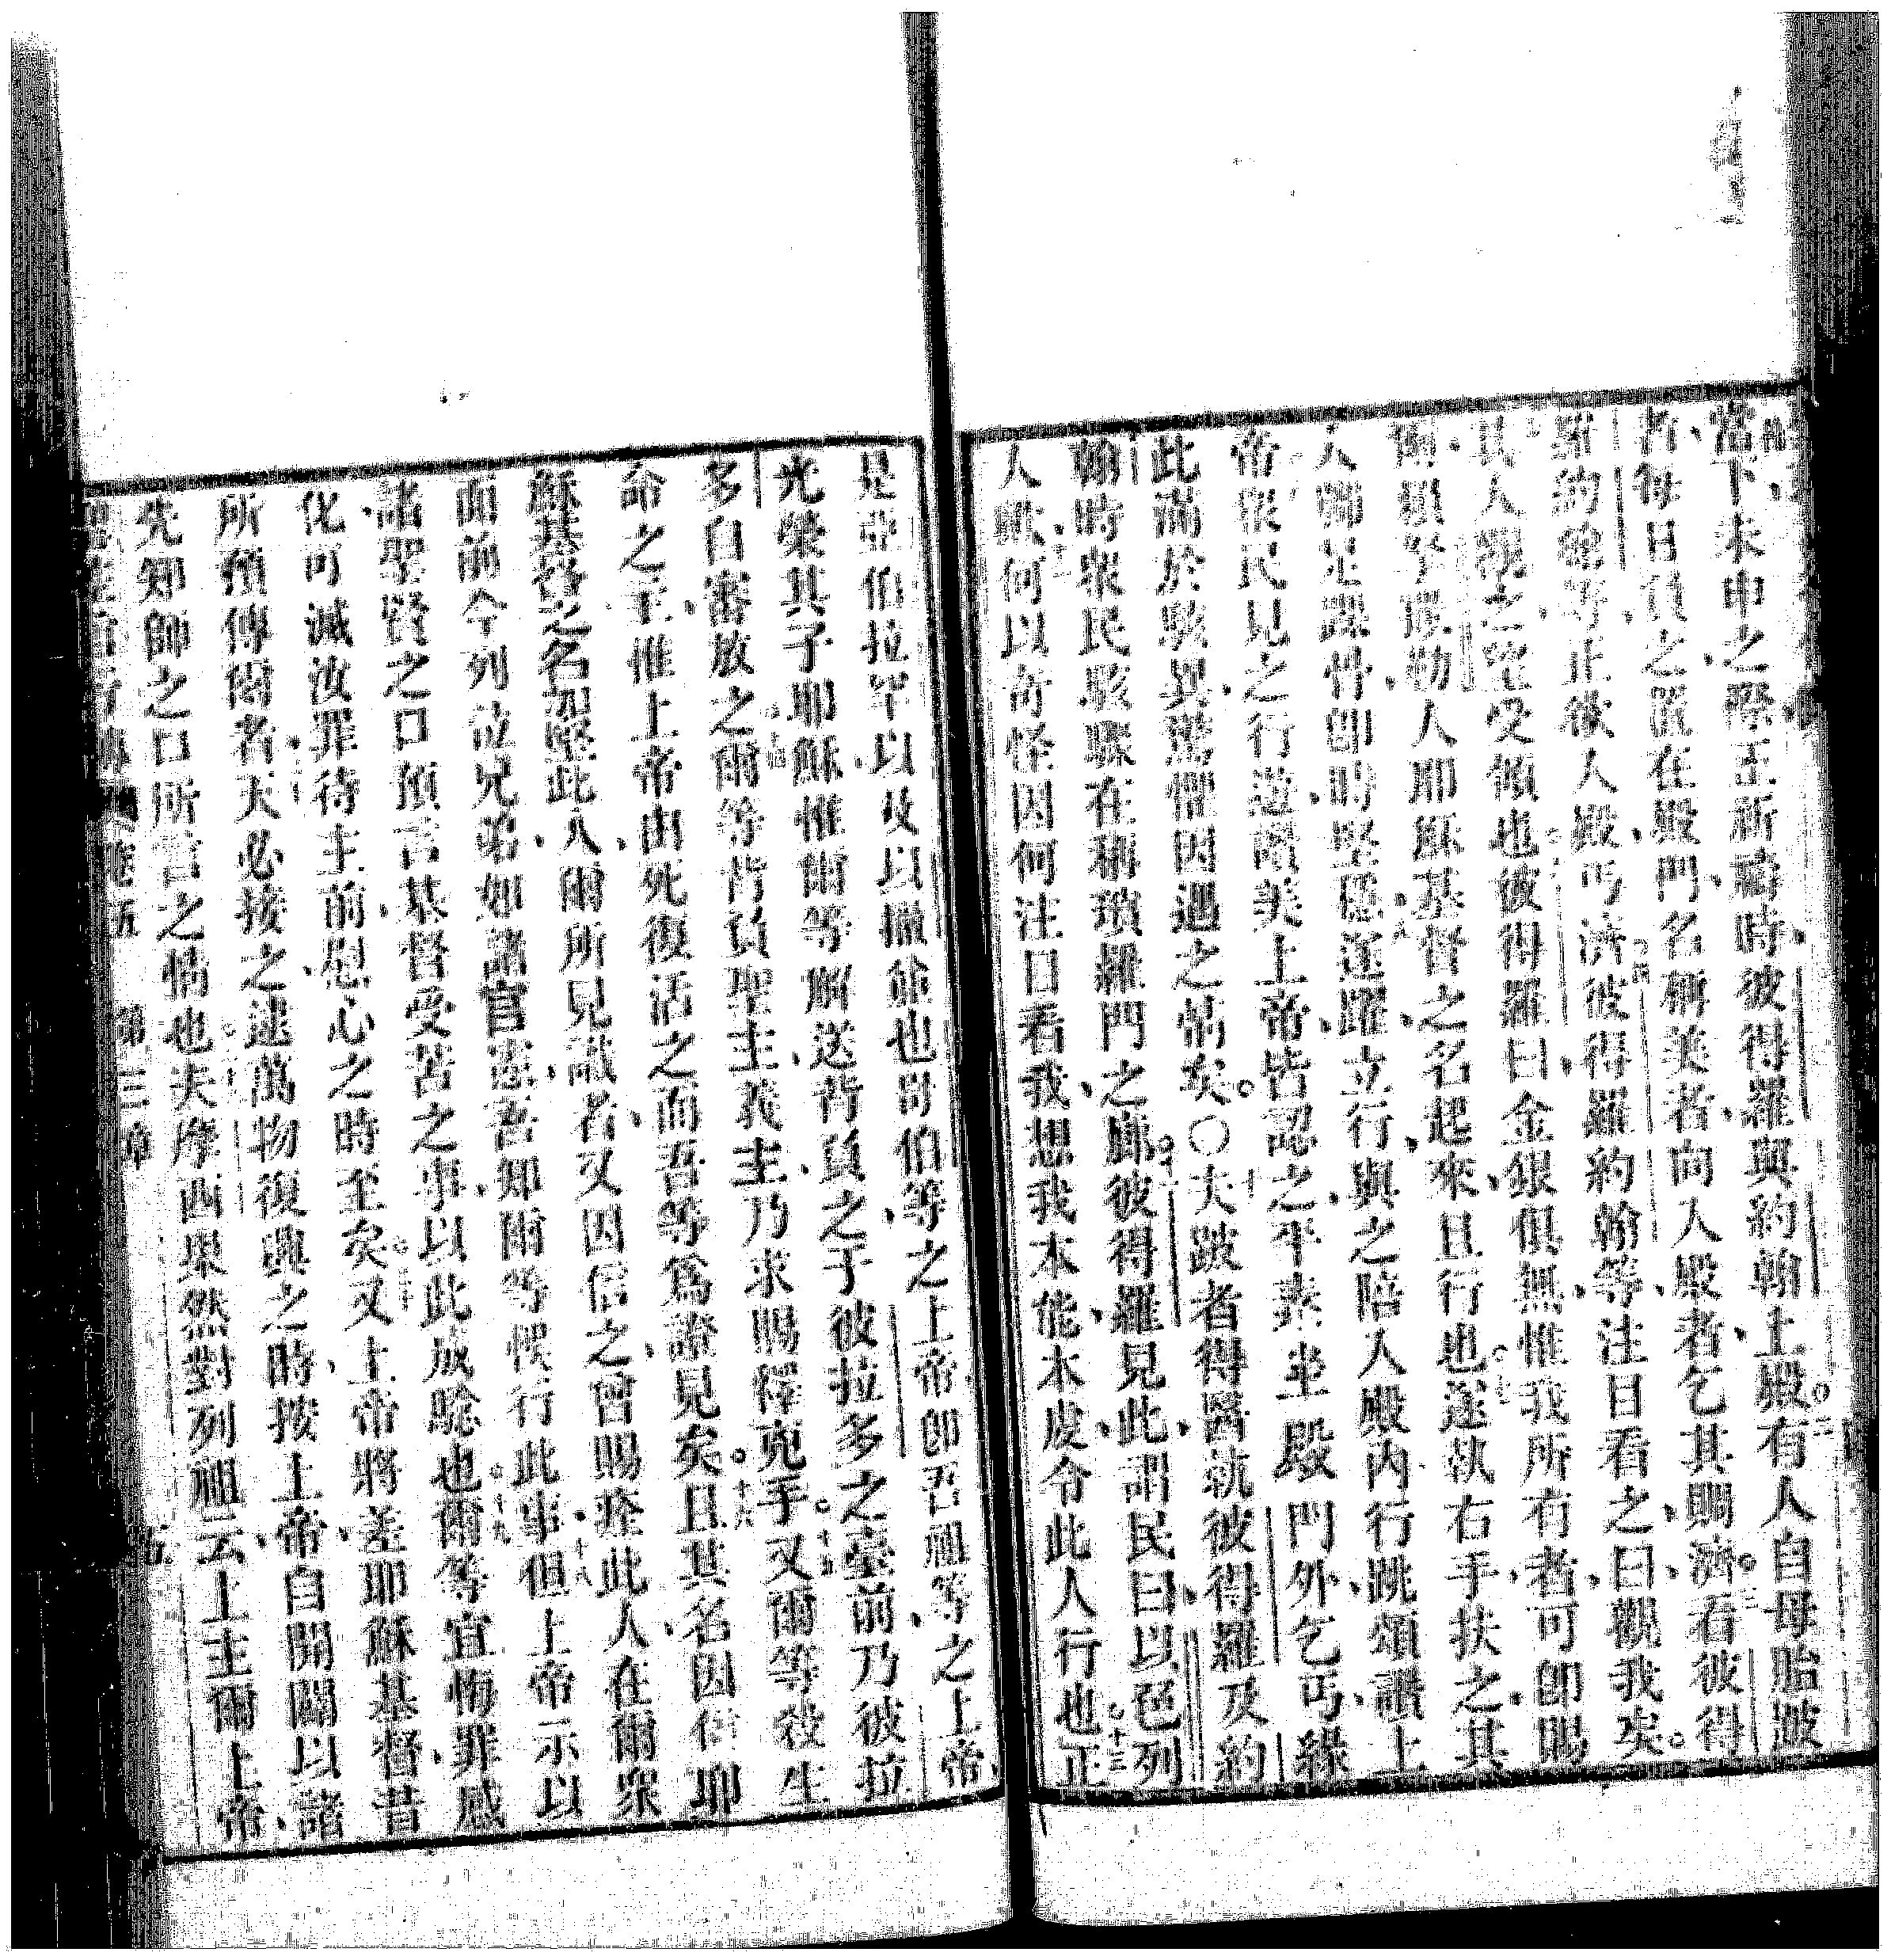 當下未申之際正祈禱時彼得羅與約翰上殿有人自母胎跛
者每日負之置在殿門名稱美者向入殿者乞其賜濟看彼得
羅約翰等正欲入殿丐濟彼得羅約翰等注目看之曰觀我矣
其人望受傾也彼得羅曰金銀俱無惟我所有者可卽賜
爾人耶穌基督之名起來且行也遂執右手扶之其
人腳足踝骨卽時堅穩逕躍立行與之陪入殿內行跳頌讚上
帝眾民見之行遊頌美上帝皆認之平素坐殿門外乞丐緣
此滿於駭異驚懼因遇之情矣〇十一夫跛者得醫執彼得羅及約
翰時眾民駭驟在稱瑣羅門之廊十二彼得羅見此謂民曰以色列
人歟何以奇怪因何注目看我想我本能本虔令此人行也十三正
是亞伯拉罕以及以撒並也哥伯等之上帝卽吾祖等之上帝
光榮其子耶穌惟爾等解送背負之于彼拉多之臺前乃彼拉
多自審放之爾等背負聖主義主乃求賜釋兇手十五又爾等殺生
命之主惟上帝由死復活之而吾等為證見矣十六且其名因信耶
穌基督之名加堅此人爾所見識者又因信之曾賜痊此人在爾眾
面前今列位兄弟如諸官憲吾知爾等悞行此事十八但上帝示以
諸聖賢之口預言基督受苦之事以此成驗也十九爾等宜悔罪感
化可滅汝罪待主前慰心之時至矣二十又上帝將差耶穌基督昔
所預傳爾者天必接之逮萬物復興之時按上帝自開闢以諸
先知師之口所言之情也夫摩西果然對列祖云上主爾上帝
第三章
五